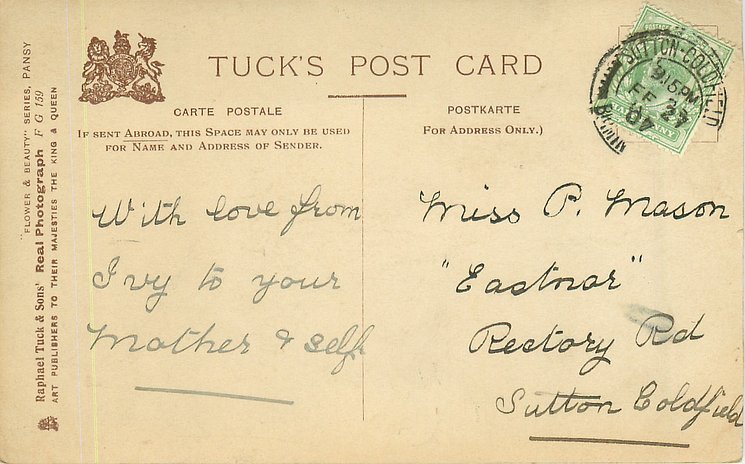 TUCK'S POST CARD
CARTE POSTALE
IF SENT ABROAD, THIS SPACE MAY ONLY BE USED
FOR NAME AND ADDRESS OF SENDER.
POSTKARTE
FOR ADDRESS ONLY.)
SUTTON-COLDFIELD
9.15 PM
FE 27
07
With love from
Ivy to your
Mother & self
Miss P. Mason
"Eastnor"
Rectory Rd
Sutton Coldfield
"FLOWER & BEAUTY" SERIES, PANSY
Raphael Tuck & Sons' Real Photograph F G 159
ART PUBLISHERS TO THEIR MAJESTIES THE KING & QUEEN